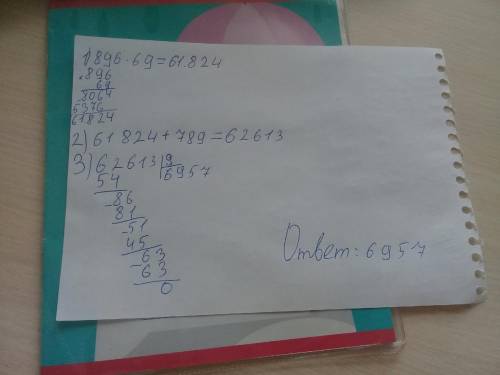 1) 896 · 69 = 61.824
× 896
69
8064
5376
61824
2) 61 824 + 789 = 62613
3) 62613 | 9
54 6957
- 86
81
- 51
45
- 63
63
0
Ответ: 6957